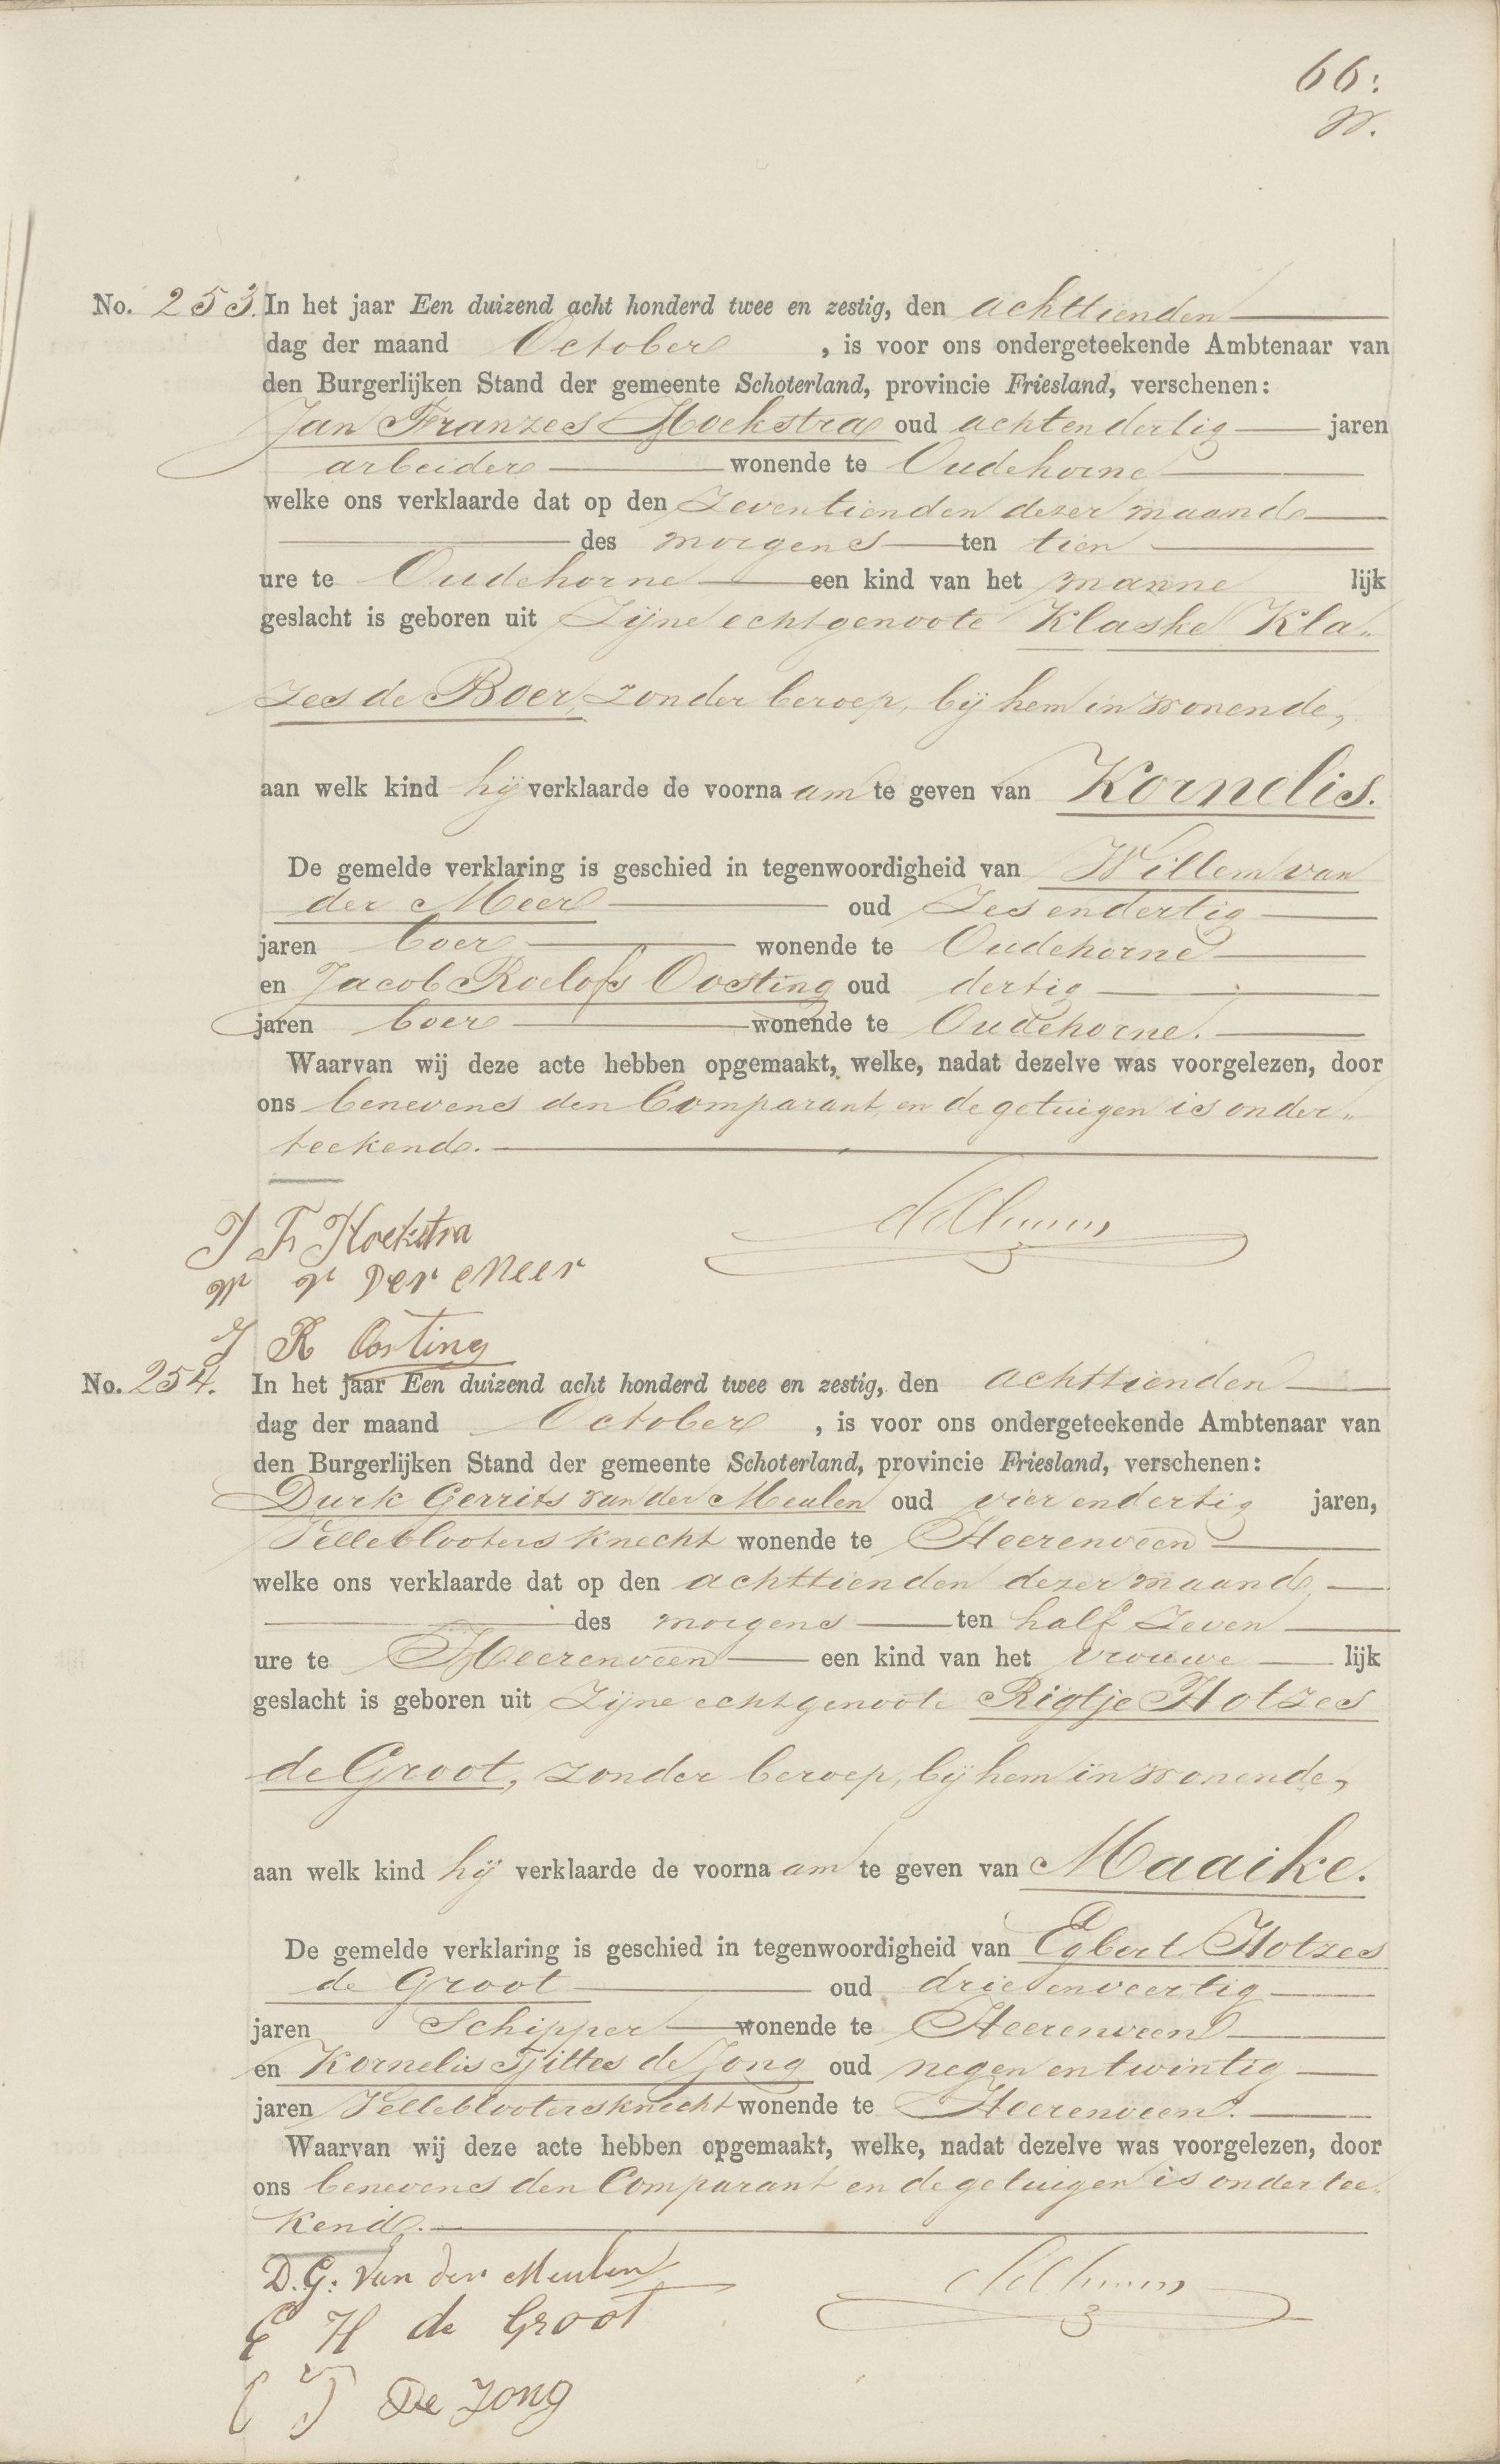 66.
No. 253. In het jaar Een duizend acht honderd twee en zestig, den achttienden
dag der maand October , is voor ons ondergeteekende Ambtenaar van
den Burgerlijken Stand der gemeente Schoterland, provincie Friesland, verschenen:
Jan Franzes Hoekstra oud achtendertig jaren
arbeider wonende te Oudehorne
welke ons verklaarde dat op den zeventienden dezer maand
des morgens ten tien
ure te Oudehorne een kind van het manne lijk
geslacht is geboren uit zijne echtgenoote Klaske Kla„
zes de Boer, zonder beroep, bij hem inwonende,
aan welk kind hij verklaarde de voorna am te geven van Kornelis.
De gemelde verklaring is geschied in tegenwoordigheid van Willem van
der Meer oud zesendertig
jaren boer wonende te Oudehorne
en Jacob Roelofs Oosting oud dertig
jaren boer wonende te Oudehorne.
Waarvan wij deze acte hebben opgemaakt, welke, nadat dezelve was voorgelezen, door
ons benevens den Comparant en de getuigen is onder„
teekend.
J F Hoekstra
W v Der Meer
J R Oosting
No. 254. In het jaar Een duizend acht honderd twee en zestig, den achttienden
dag der maand October , is voor ons ondergeteekende Ambtenaar van
den Burgerlijken Stand der gemeente Schoterland, provincie Friesland, verschenen:
Durk Gerrits van der Meulen oud vierendertig jaren,
Velleblooters knecht wonende te Heerenveen
welke ons verklaarde dat op den achttienden dezer maand,
des morgens ten half zeven
ure te Heerenveen een kind van het vrouwe lijk
geslacht is geboren uit zijne echtgenoote Rigtje Hotzes
de Groot, zonder beroep, bij hem inwonende,
aan welk kind hij verklaarde de voorna am te geven van Maaike.
De gemelde verklaring is geschied in tegenwoordigheid van Egbert Hotzes
de Groot oud drieenveertig
jaren Schipper wonende te Heerenveen
en Kornelis Tjittes de Jong oud negenentwintig
jaren Velleblootersknecht wonende te Heerenveen.
Waarvan wij deze acte hebben opgemaakt, welke, nadat dezelve was voorgelezen, door
ons benevens den Comparant en de getuigen is ondertee„
kend.
D. G. Van der Meulen
E H de Groot
De Jong